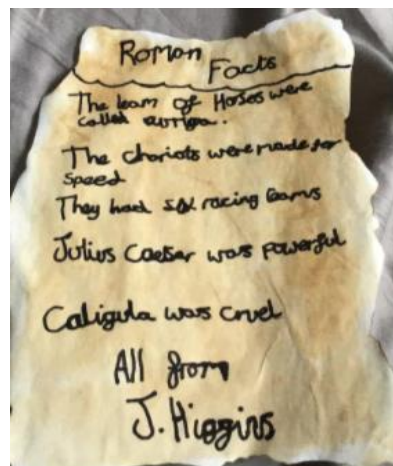 Roman Facts
The team of Horses were
called auriga.
The chariots were made for
speed
They had six racing teams
Julius Caesar was powerful
Caligula was cruel
All from
J. Higgins